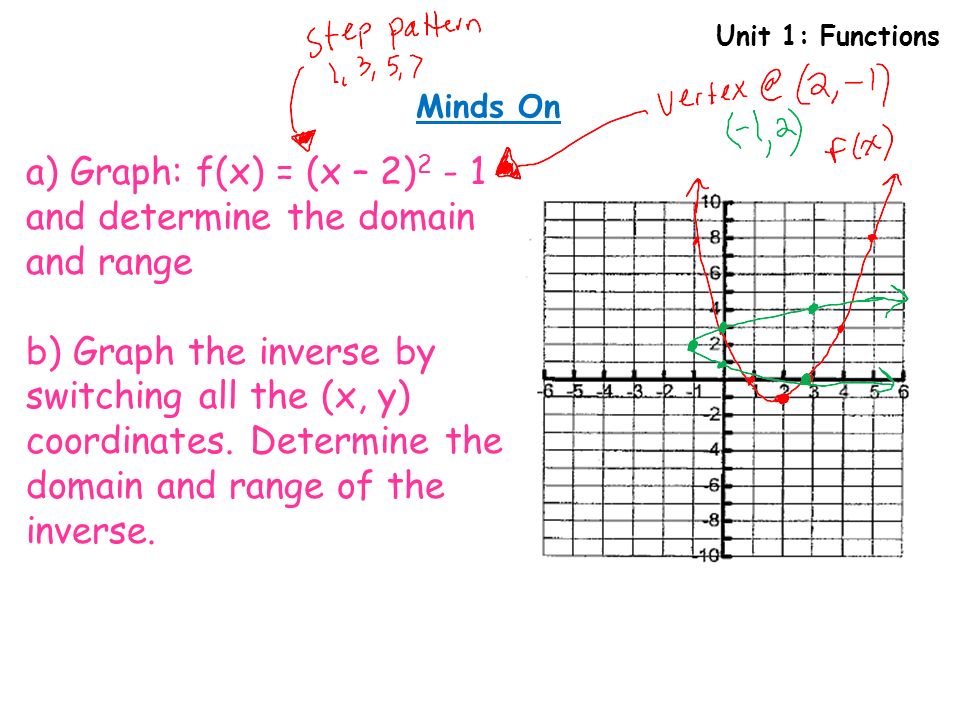 Unit 1: Functions
step pattern
1, 3, 5, 7
Minds On
vertex @ (2, -1)
(-1, 2)
f(x)
a) Graph: f(x) = (x – 2)² - 1
and determine the domain
and range
b) Graph the inverse by
switching all the (x, y)
coordinates. Determine the
domain and range of the
inverse.
10
8
6
4
2
-6 -5 -4 -3 -2 -1 1 2 3 4 5 6
-2
-4
-6
-8
-10